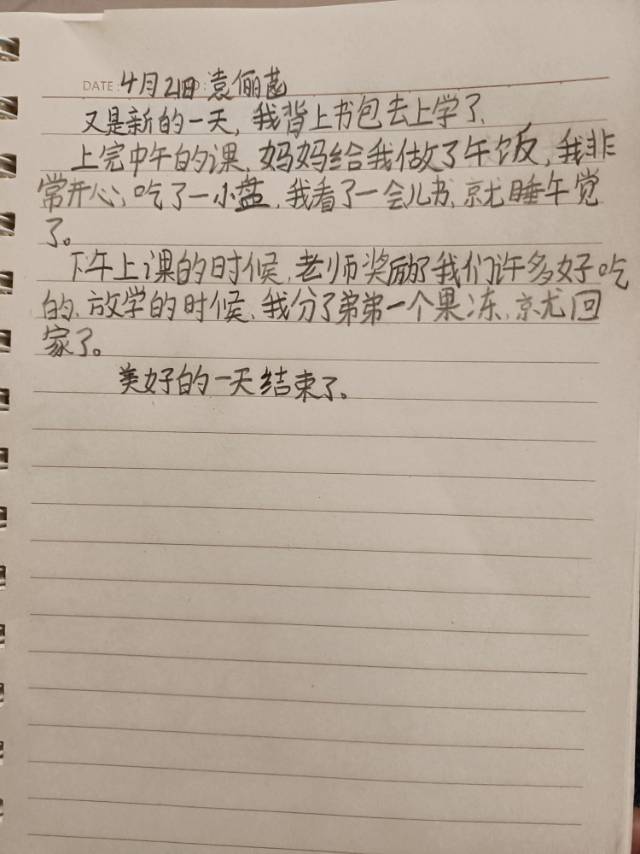 DATE: 4月21日袁俪菡
又是新的一天,我背上书包去上学了.
上完中午的课,妈妈给我做了午饭,我非
常开心,吃了一小盘,我看了一会儿书,就睡午觉
了。
下午上课的时候,老师奖励了我们许多好吃
的,放学的时候,我分了弟弟一个果冻,就回
家了。
美好的一天结束了。